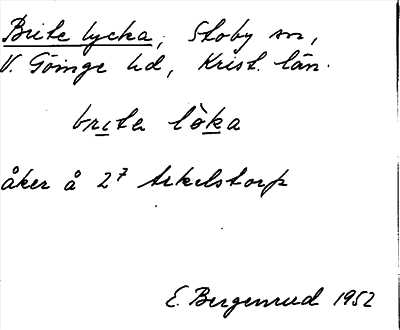 Brite lycka, Stoby sn,
V. Göinge hd, Krist. län.
brıta lòka
åker å 2⁷ Arkelstorp
E. Bergenrud 1952